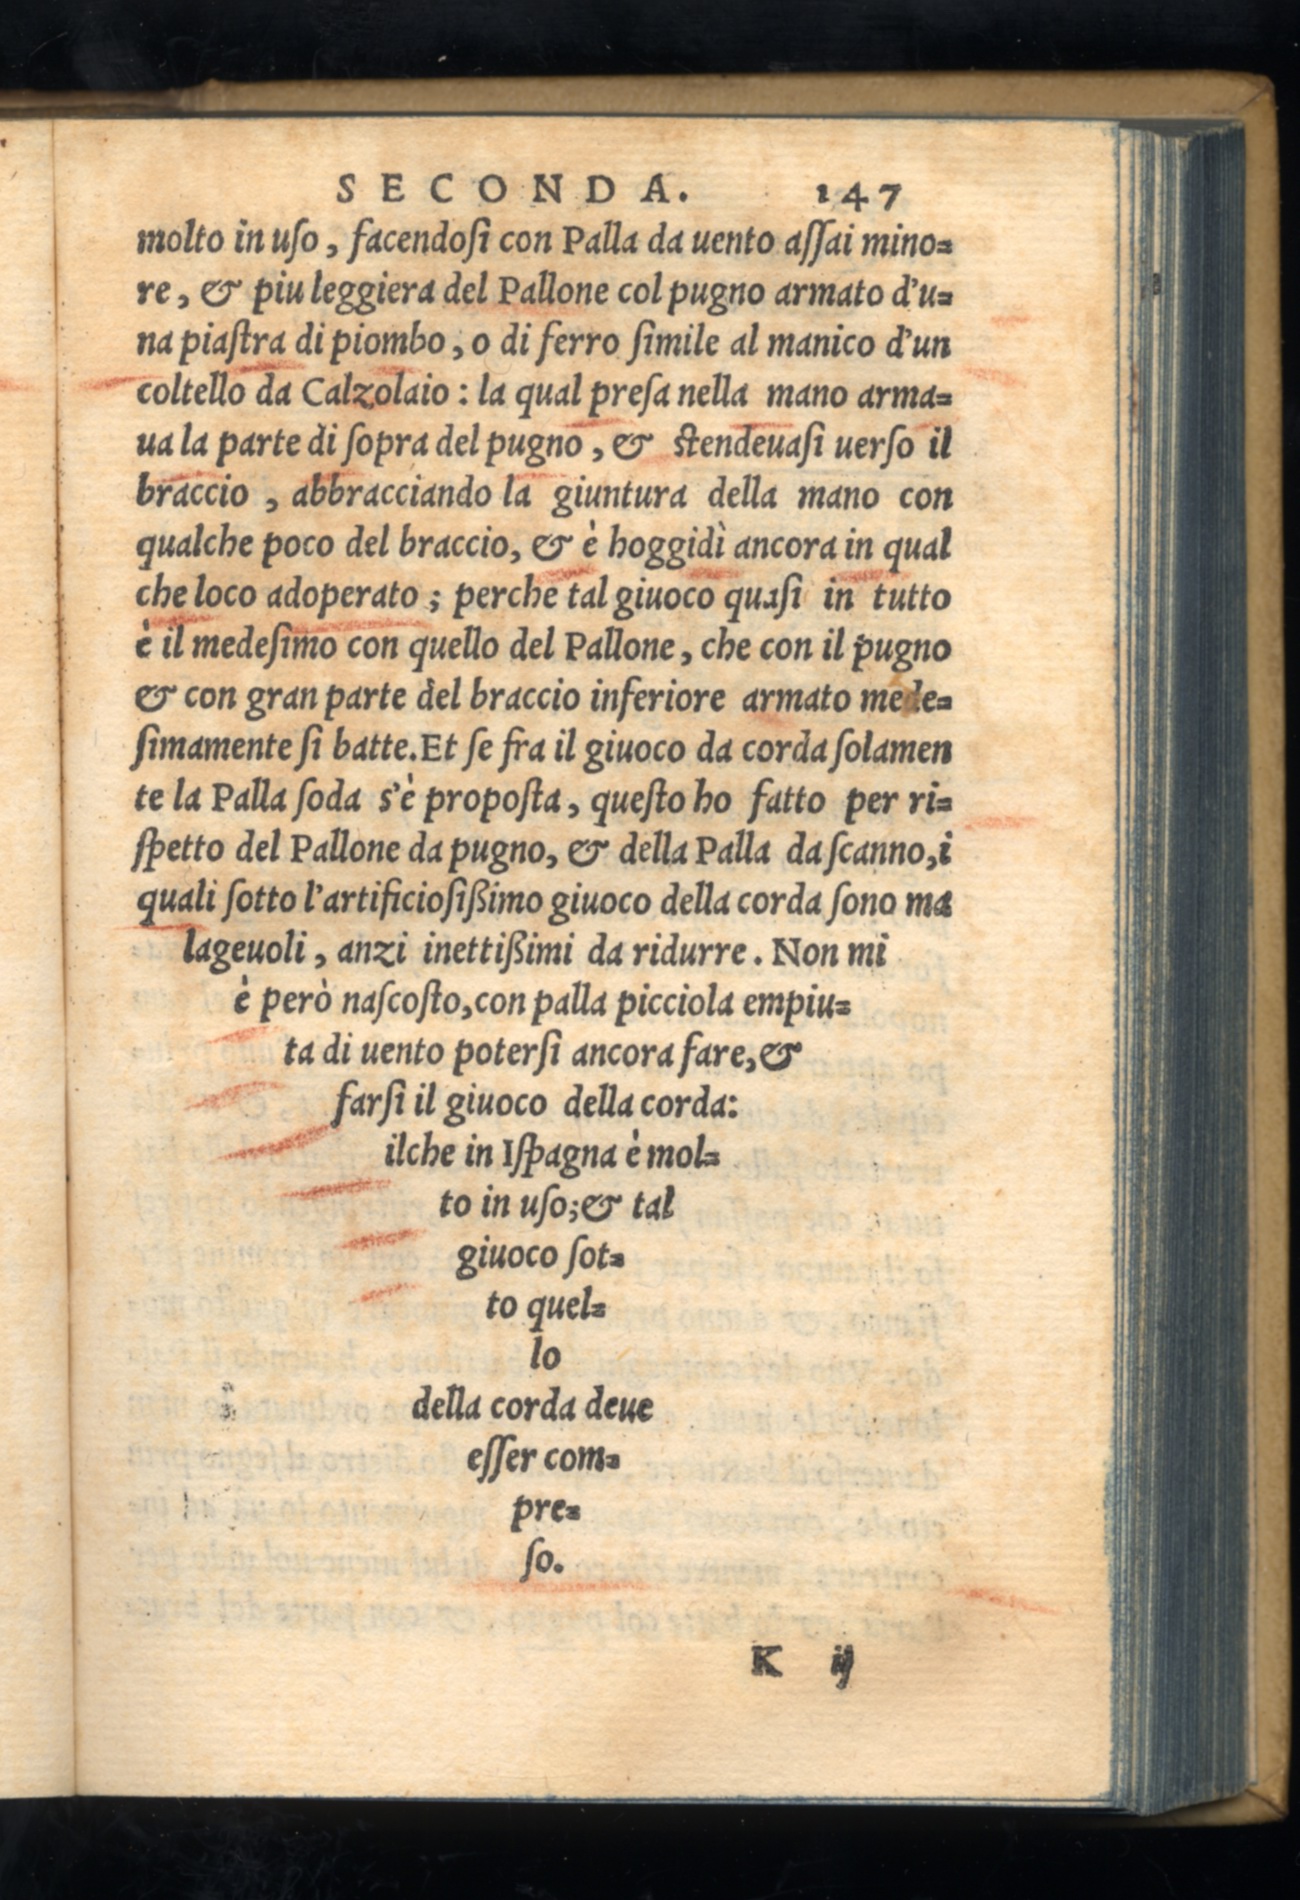 SECONDA. 147
molto in uſo, facendoſi con Palla da uento aſſai mino=
re, & piu leggiera del Pallone col pugno armato d'u=
na piaſtra di piombo, o di ferro ſimile al manico d'un
coltello da Calzolaio: la qual preſa nella mano arma=
ua la parte di ſopra del pugno, & ſtendeuaſi uerſo il
braccio, abbracciando la giuntura della mano con
qualche poco del braccio, & è hoggidì ancora in qual
che loco adoperato; perche tal giuoco quaſi in tutto
è il medeſimo con quello del Pallone, che con il pugno
& con gran parte del braccio inferiore armato mede=
ſimamente ſi batte. Et ſe fra il giuoco da corda ſolamen
te la Palla ſoda s'è propoſta, queſto ho fatto per ri=
ſpetto del Pallone da pugno, & della Palla da ſcanno, i
quali ſotto l'artificioſißimo giuoco della corda ſono ma
lageuoli, anzi inettißimi da ridurre. Non mi
è però naſcoſto, con palla picciola empiu=
ta di uento poterſi ancora fare, &
farſi il giuoco della corda:
ilche in Iſpagna è mol=
to in uſo; & tal
giuoco ſot=
to quel=
lo
della corda deue
eſſer com=
pre=
ſo.
K ij